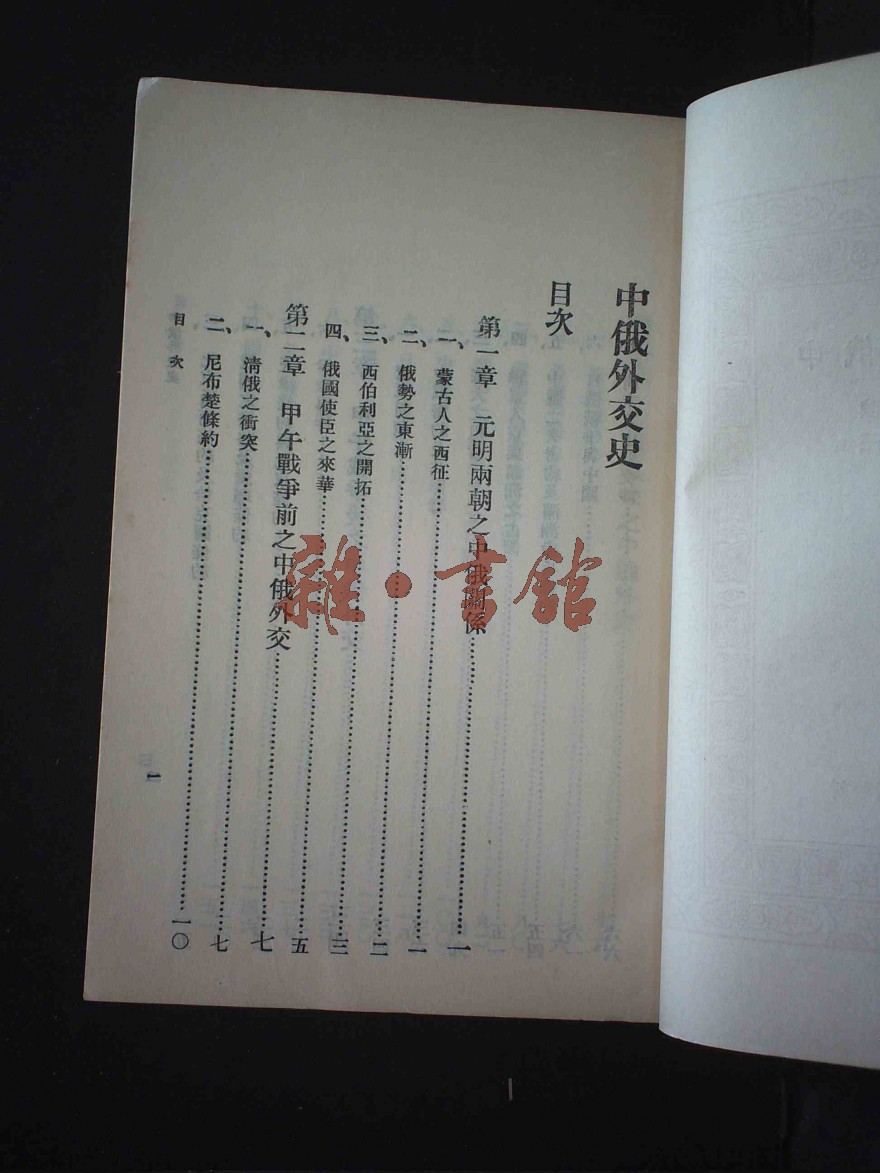 中俄外交史
目次
第一章 元明兩朝之中俄關係……一
一、蒙古人之西征……一
二、俄勢之東漸……二
三、西伯利亞之開拓……三
四、俄國使臣之來華……五
第二章 甲午戰爭前之中俄外交……七
一、清俄之衝突……七
二、尼布楚條約……一〇
目次
一
雜·書館